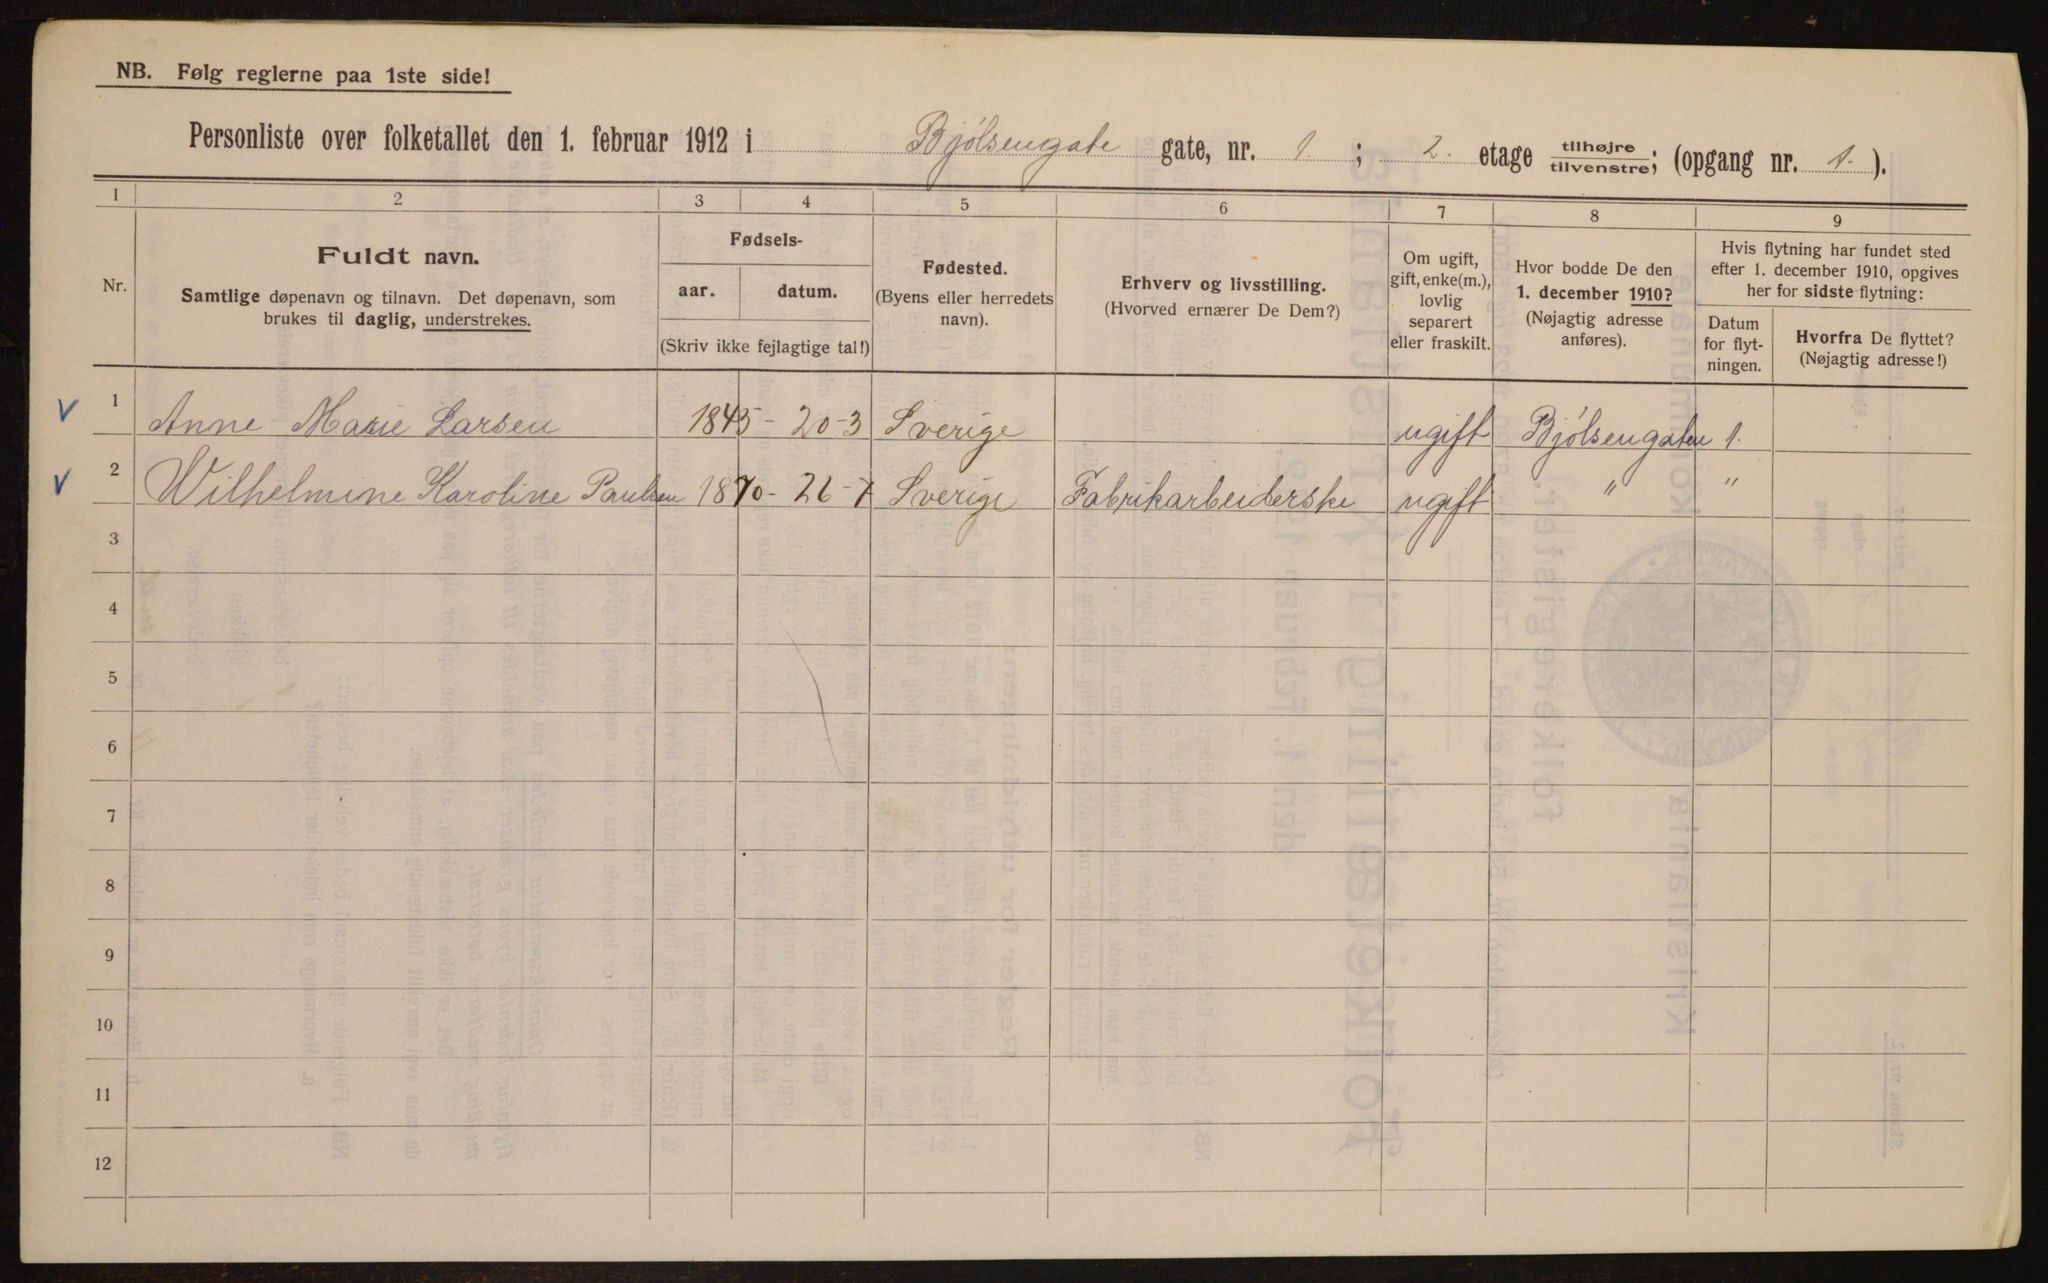 NB. Følg reglerne paa 1ste side!
Personliste over folketallet den 1. februar 1912 i Bjölsengate gate, nr. 1. ; 2. etage tilhøjre/tilvenstre; (opgang nr. 1. ).
1 2 3 4 5 6 7 8 9
Nr.
Fuldt navn.
Samtlige døpenavn og tilnavn. Det døpenavn, som
brukes til daglig, understrekes.
Fødsels-
aar. datum.
(Skriv ikke fejlagtige tal!)
Fødested.
(Byens eller herredets
navn).
Erhverv og livsstilling.
(Hvorved ernærer De Dem?)
Om ugift,
gift, enke(m.),
lovlig
separert
eller fraskilt.
Hvor bodde De den
1. december 1910?
(Nøjagtig adresse
anføres).
Hvis flytning har fundet sted
efter 1. december 1910, opgives
her for sidste flytning:
Datum
for flyt-
ningen.
Hvorfra De flyttet?
(Nøjagtig adresse!)
1 Anne Marie Larsen 1845 - 20-3 Sverige ugift Bjölsengaten 1.
2 Wilhelmine Karoline Paulsen 1870 - 26-7 Sverige Fabrikarbeiderske ugift " "
3
4
5
6
7
8
9
10
11
12